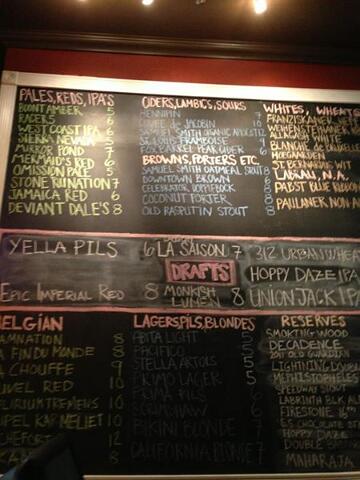 PALES, REDS, IPA'S
BOONT AMBER 5
RACER5 6
WEST COAST IPA 6
SIERRA NEVADA 5
MIRROR POND 7
MERMAID'S RED 6
OMISSION PALE 5
STONE RUINATION 7
JAMAICA RED 6
DEVIANT DALE'S 8
CIDERS, LAMBICS, SOURS
HENNIPIN 7
CUVEE de JACOBIN 10
SAMUEL SMITH ORGANIC APPLE 12
ST LOUIS FRAMBOISE 9
FOX BARREL PEAR CIDER 6
BROWNS, PORTERS ETC.
SAMUEL SMITH OATMEAL STOUT 8
DOWNTOWN BROWN 6
CELEBRATOR DOPPELBOCK 8
COCONUT PORTER 8
OLD RASPUTIN STOUT 8
WHITES, WHEATS
FRANZISKANER
WEIHENSTEPHANER
ALLAGASH WHITE
BLANCHE de BRUXELLE
HOEGAARDEN
ST. BERNARDUS WIT
PABST BLUE RIBBON
PAULANER NON A
YELLA PILS 6
LA SAISON 7
312 URBAN WHEA
DRAFTS
HOPPY DAZE IPA
EPIC IMPERIAL RED 8
MONKISH
LUMEN 8
UNION JACK IPA
BELGIAN
AMNATION 8
A FIN DU MONDE 8
A CHOUFFE 9
UVEL RED 10
LIRIUM TREMENS 10
UPEL KARMELIET 10
CHEFORT 12
8
LAGERS, PILS, BLONDES
ABITA LIGHT 5
PACIFICO 5
STELLA ARTOIS 5
PRIMO LAGER 5
PRIMA PILS 6
SCRIMSHAW 6
BIKINI BLONDE 7
CALIFORNIA BLONDE 7
RESERVES
SMOKING WOOD
DECADENCE
2011 OLD GUARDIAN
LIGHTNING DOUBLE
MEPHISTOPHELES
SPEEDWAY STOUT
LABRINTH BLK AL
FIRESTONE 16
CHOCOLATE STO
HOPPY DAZE
DOUBLE
MAHARAJA